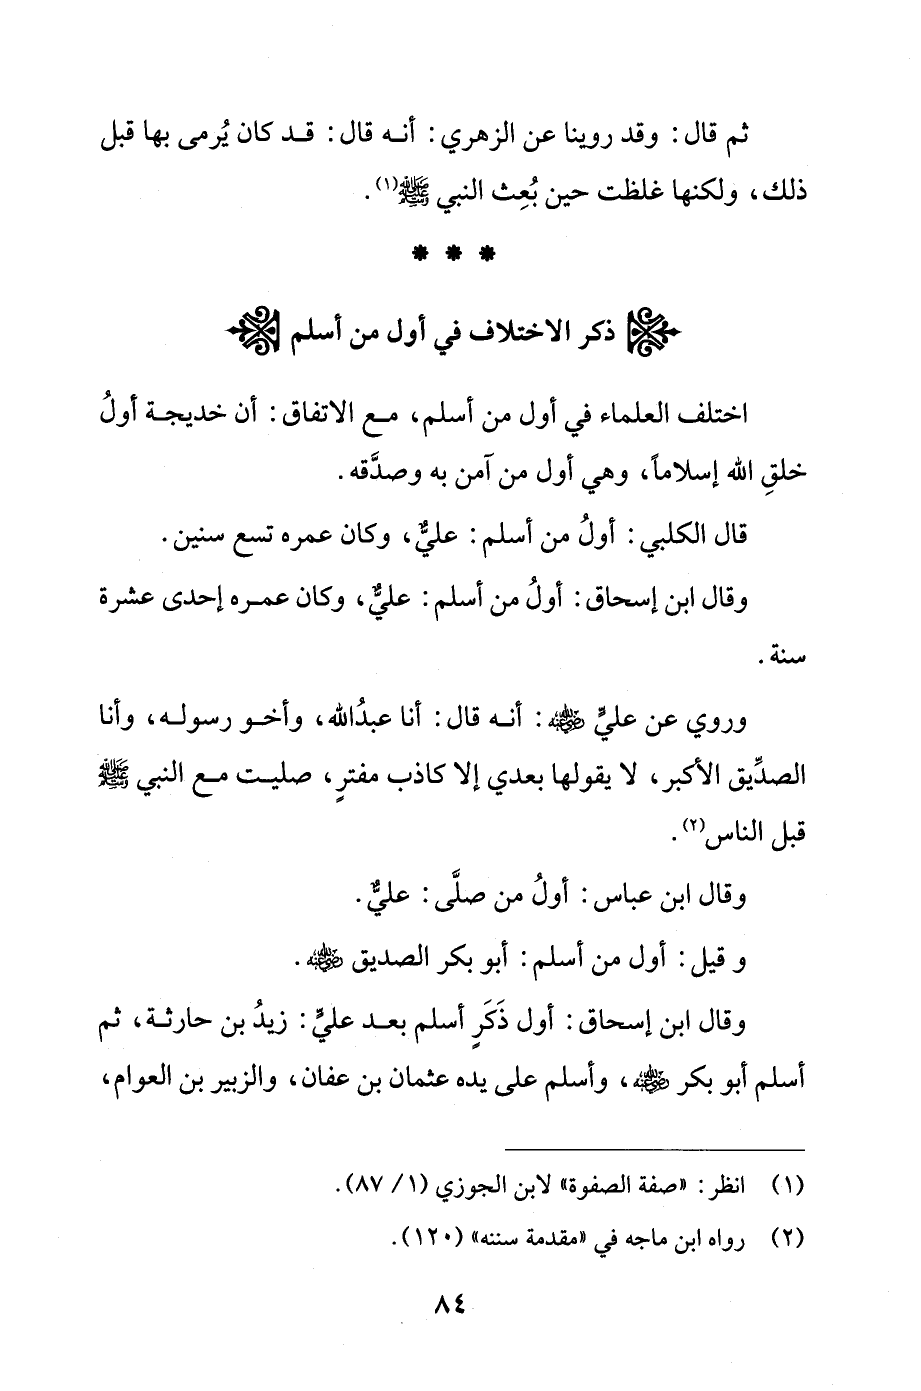 ثم قال: وقد روينا عن الزهري: أنه قال: قد كان يُرمى بها قبل
ذلك، ولكنها غلظت حين بُعِث النبي ﷺ(١).
* * *
ذكر الاختلاف في أول من أسلم
اختلف العلماء في أول من أسلم، مع الاتفاق: أن خديجة أولُ
خلقِ الله إسلاماً، وهي أول من آمن به وصدَّقه.
قال الكلبي: أولُ من أسلم: عليٌّ، وكان عمره تسع سنين.
وقال ابن إسحاق: أولُ من أسلم: عليٌّ، وكان عمره إحدى عشرة
سنة.
وروي عن عليٍّ رضي الله عنه: أنه قال: أنا عبدُالله، وأخو رسوله، وأنا
الصدِّيق الأكبر، لا يقولها بعدي إلا كاذب مفترٍ، صليت مع النبي ﷺ
قبل الناس(٢).
وقال ابن عباس: أولُ من صلَّى: عليٌّ.
و قيل: أول من أسلم: أبو بكر الصديق رضي الله عنه.
وقال ابن إسحاق: أول ذَكَرٍ أسلم بعد عليٍّ: زيدُ بن حارثة، ثم
أسلم أبو بكر رضي الله عنه، وأسلم على يده عثمان بن عفان، والزبير بن العوام،
(١) انظر: «صفة الصفوة» لابن الجوزي (١/ ٨٧).
(٢) رواه ابن ماجه في «مقدمة سننه» (١٢٠).
٨٤